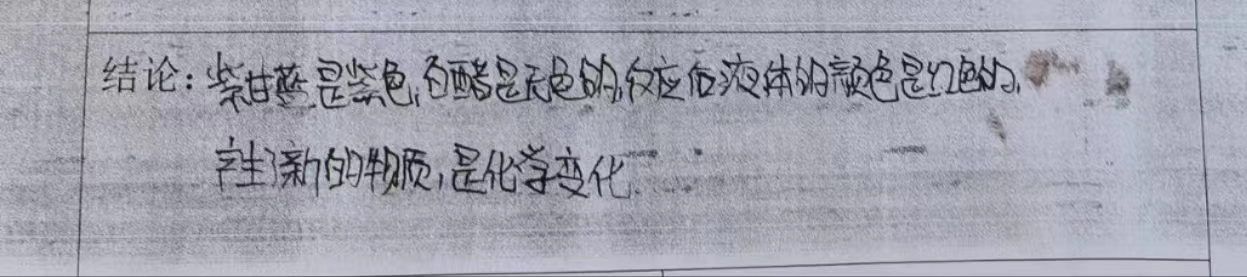 结论：紫甘蓝是紫色，白醋是无色的，反应后液体的颜色是红色的，
产生了新的物质，是化学变化